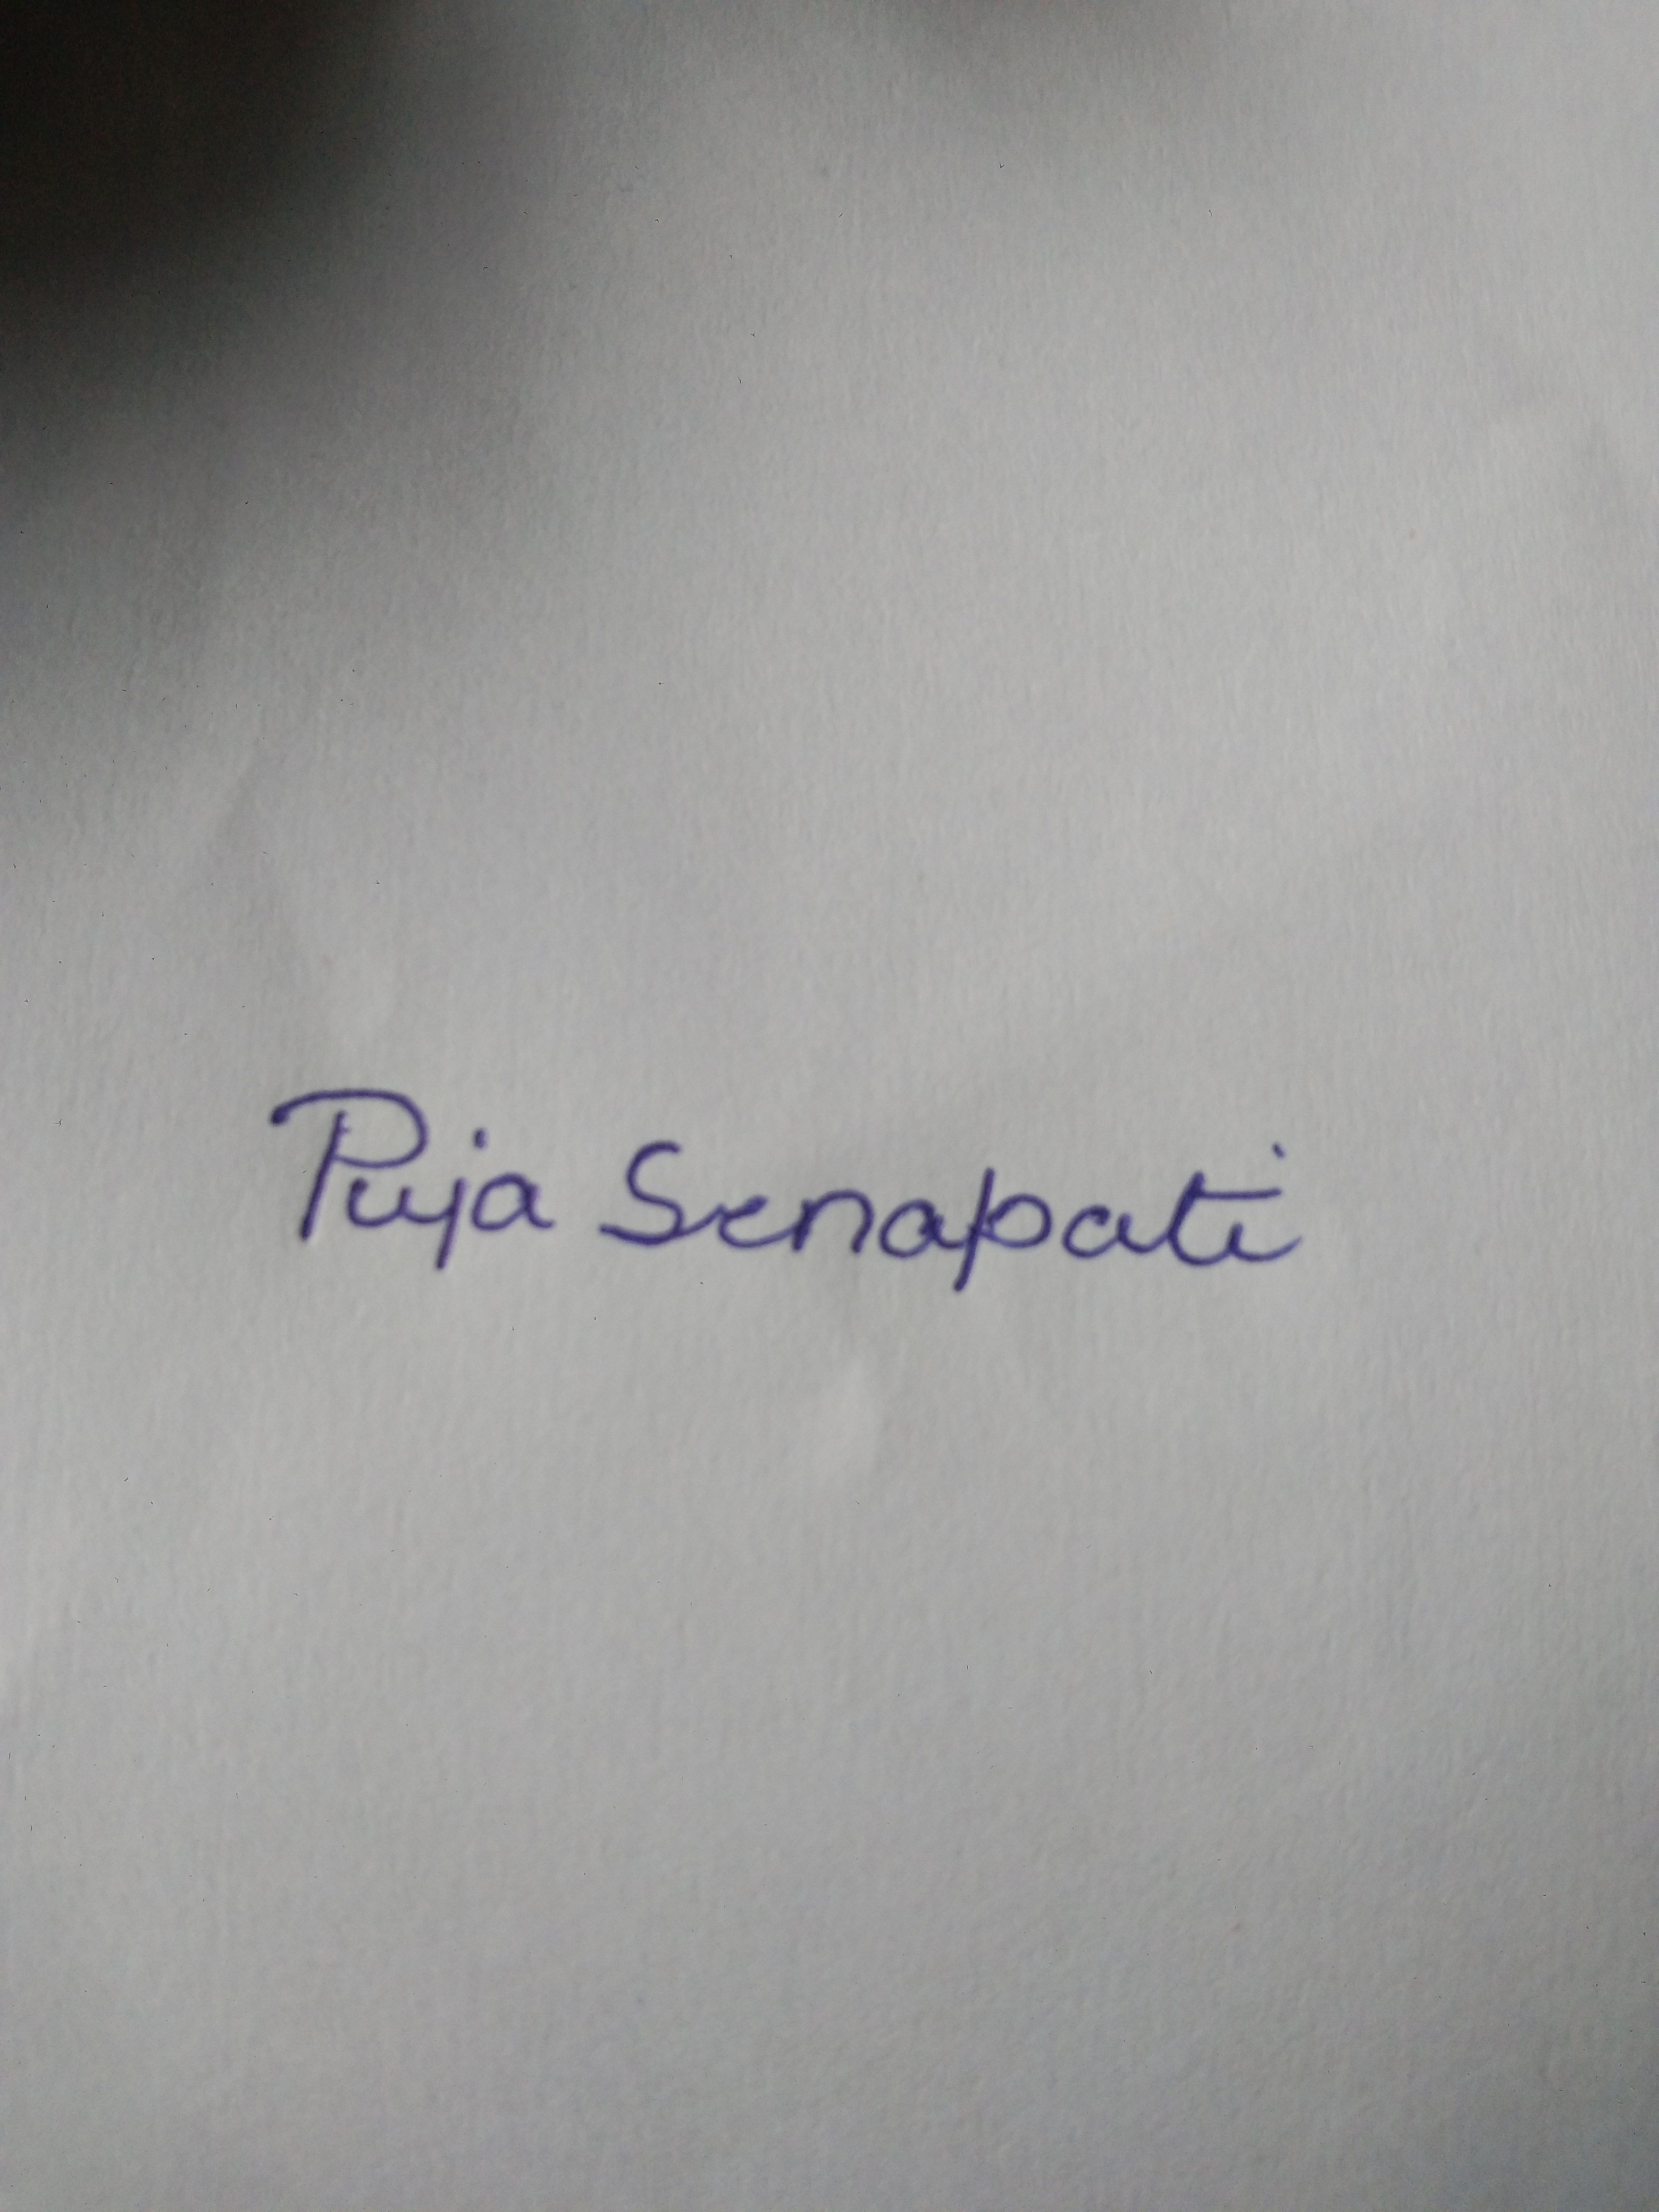 Puja Senapati